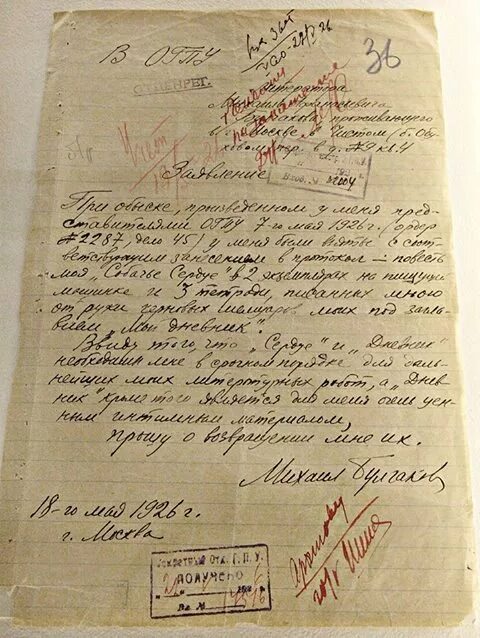 В ОГПУ
36
СЕКРЕТ.
Литератора
Михаила Афанасьевича
Булгакова, проживающего
в Москве, в Чистом (б. Обу-
ховом) пер. в д. № 9 кв. 4
Заявление
При обыске, произведенном у меня пред-
ставителями ОГПУ 7-го мая 1926 г. (ордер
№ 2287, дело 45), у меня были взяты с соот-
ветствующим занесением в протокол — повесть
моя „Собачье Сердце" в 2 экземплярах на пишущей
машинке и 3 тетради, писанных мною
от руки черновых мемуаров моих под загла-
вием „Мой дневник".
Ввиду того, что „Сердце" и „Дневник"
необходимы мне в срочном порядке для даль-
нейших моих литературных работ, а „Днев-
ник" кроме того является для меня очень цен-
ным интимным материалом,
прошу о возвращении мне их.
Михаил Булгаков
18-го мая 1926 г.
г. Москва
Секретный Отд. Г.П.У.
ПОЛУЧЕНО
Вх. №